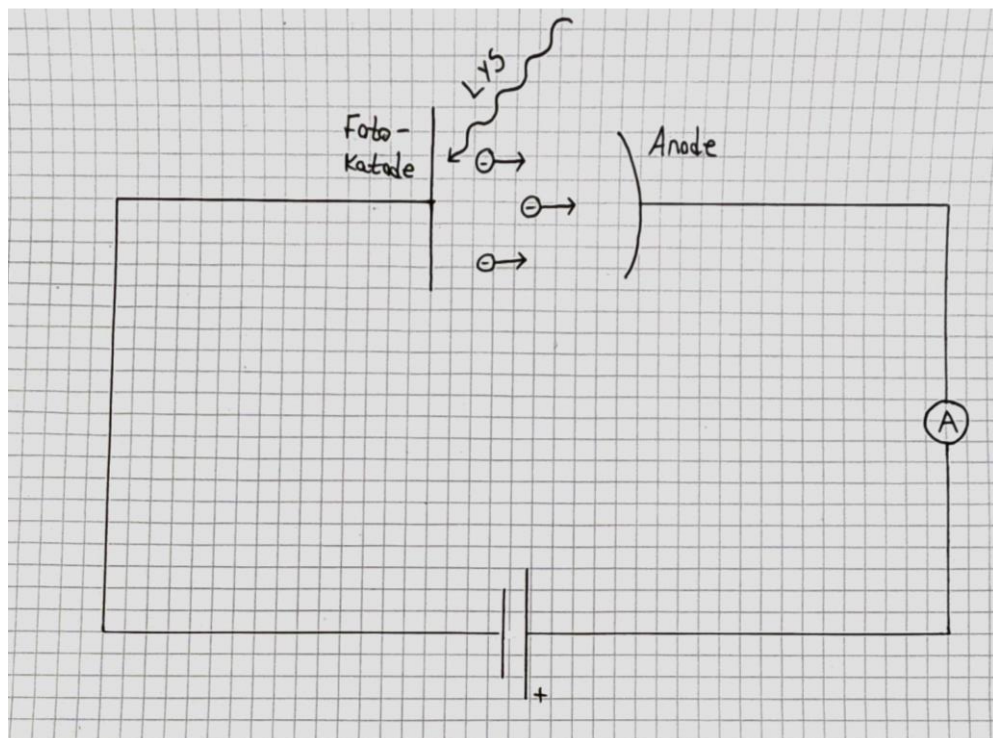 Lys
Foto-
Katode
Anode
-
-
-
A
+